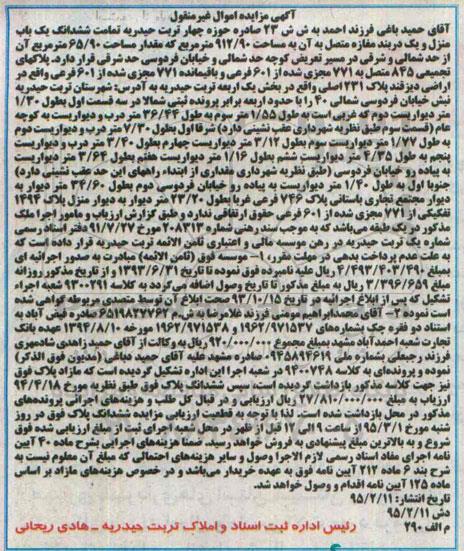 آگهی مزایده اموال غیرمنقول
آقای حمید باغی فرزند احمد به ش ش ۲۳ صادره حوزه چهار تربت حیدریه تمامت ششدانگ یک باب
منزل و یک دربند مغازه متصل به آن به مساحت ۹۱۲/۹۰ مترمربع که مقدار مساحت ۶۵/۹۰ مترمربع آن
از حد شمالی و شرقی در مسیر تعریض کوچه حد شمالی و خیابان فردوسی حد شرقی قرار دارد. پلاکهای
تجمیعی ۸۴۵ متصل به ۷۷۱ مجزی شده از ۶۰۱ فرعی و باقیمانده ۷۷۱ مجزی شده از ۶۰۱ فرعی واقع در
اراضی دیزقند پلاک ۲۳۱ اصلی واقع در بخش یک اربعه تربت حیدریه به آدرس: شهرستان تربت حیدریه
نبش خیابان فردوسی شمالی ۴۰ را با حدود اربعه برابر پرونده ثبتی شمالا در سه قسمت اول بطول ۱/۳۰
متر دیواریست دوم که غربی است بطول ۱/۵۵ متر سوم به طول ۳۶/۴۴ متر درب و دیواریست به کوچه
عام (قسمت سوم طبق نظریه شهرداری عقب نشینی دارد) شرقا اول بطول ۷/۳۰ متر درب و دیواریست دوم
به طول ۱/۷۷ متر دیواریست سوم بطول ۳/۱۲ متر دیواریست چهارم بطول ۳/۴۰ متر درب و دیواریست
پنجم به طول ۴/۳۵ متر دیواریست ششم بطول ۱/۱۶ متر دیواریست هفتم بطول ۳/۶۴ متر دیواریست
به پیاده رو خیابان فردوسی (طبق نظریه شهرداری مقداری از ابتداء راههای این حد عقب نشینی دارد)
جنوبا اول به طول ۱/۴۰ متر دیواریست به پیاده رو خیابان فردوسی دوم بطول ۳۴/۶۰ متر دیوار به
دیوار مجتمع تجاری باستانی پلاک ۷۴۶ فرعی غربا بطول ۲۳/۲۰ متر دیوار به دیوار منزل پلاک ۱۴۹۴
تفکیکی از ۷۷۱ مجزی شده از ۶۰۱ فرعی حقوق ارتفاقی ندارد و طبق گزارش ارزیاب و مامور اجرا ملک
مذکور در یک طبقه می‌باشد که به موجب سند رهنی شماره مورخ ۹۱/۷/۲۷ دفتر اسناد رسمی
شماره یک تربت حیدریه در رهن موسسه مالی و اعتباری ثامن الائمه تربت حیدریه قرار داده است که
به علت عدم پرداخت بدهی در موعد مقرر، ۱- موسسه فوق (ثامن الائمه) مبادرت به صدور اجرائیه ای
به مبلغ ۴/۴۹۳/۴۰۳/۴۹۰ ریال علیه نامبرده فوق نموده تا تاریخ ۱۳۹۳/۶/۳۱ و از تاریخ مذکور روزانه
۳/۳۹۶/۶۵۹ ریال به مبلغ مذکور تا تاریخ وصول اضافه می‌گردد به کلاسه ۹۳۰۰۲۹۱ شعبه اجراء
تشکیل که پس از ابلاغ اجرائیه در تاریخ ۹۳/۱۰/۱۵ صحت ابلاغ آن توسط متصدی مربوطه گواهی شده
است نموده ۲- آقای محمدابراهیم مومنی فرزند غلامرضا ش م ۰۶۵۱۹۸۲۷۷۶۲ صادره فیض آباد به
استناد دو فقره چک بشماره‌های ۱۹۶۲/۹۷۱۵۳۷ و ۱۹۶۲/۹۷۱۵۳۸ مورخه ۱۳۹۴/۸/۱۰ عهده بانک
تجارت شعبه احمدآباد مشهد بمبلغ مجموع ۹۲۰/۰۰۰/۰۰۰ ریال به وکالت از آقای حمید زاهدی شادمهری
فرزند رجبعلی بشماره ملی ۰۹۴۵۸۹۴۶۱۹ صادره مشهد علیه آقای حمید باغی (مدیون فوق الذکر)
نموده و پرونده‌ای به کلاسه ۹۴۰۰۷۴۸ در شعبه اجرا این اداره تشکیل گردیده است که مازاد پلاک فوق
نیز جهت کلاسه مذکور بازداشت گردیده است، سپس ششدانگ پلاک فوق طبق نظریه مورخ ۹۴/۴/۱۸
ارزیاب به مبلغ ۲۷/۸۱۰/۰۰۰/۰۰۰ ریال ارزیابی و در قبال کل طلب و هزینه‌های اجرائی پرونده‌های
مذکور در محل بازداشت شده است. لذا با توجه به قطعیت ارزیابی مزایده ششدانگ پلاک فوق در روز
شنبه مورخ ۹۵/۳/۱ از ساعت ۹ الی ۱۲ قبل از ظهر در محل شعبه اجرای ثبت از مبلغ ارزیابی شده فوق
شروع و به بالاترین مبلغ پیشنهادی به فروش خواهد رسید. ضمنا هزینه‌های اجرایی بشرح ماده ۴۰ آیین
نامه اجرای مفاد اسناد رسمی لازم الاجرا وصول و سایر هزینه‌های احتمالی که مبلغ آن معلوم نیست به
شرح بند ۶ ماده ۲۱۲ آیین نامه فوق به عهده خریدار می‌باشد و در خصوص هزینه‌های مازاد بر اساس
ماده ۱۲۵ آیین نامه اقدام و وصول خواهد شد.
تاریخ انتشار: ۹۵/۲/۱۱
دش ۹۵/۲/۱۱
م الف ۲۹۰
رئیس اداره ثبت اسناد و املاک تربت حیدریه - هادی ریحانی